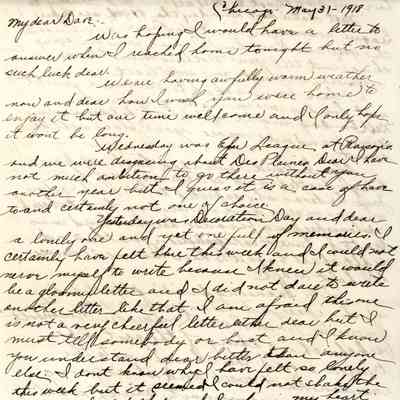 Chicago. May 31-1918.
My dear Dave:-
Was hoping I would have a letter to
answer when I reached home tonight but no
such luck dear.
We are having awfully warm weather
now and dear how I wish you were home to
enjoy it but our time will come and I only hope
it wont be long.
Wednesday was League at
and we were discussing about Des Plaines Dear I have
not much ambition to go there without you
another year but I guess it is a case of have
to and certainly not one of choice.
Yesterday was Decoration Day and dear
a lonely one and yet one full of memories. I
certainly have felt blue this week and I could not
nerve myself to write because I knew it would
be a gloomy letter and I did not dare to write
another letter like that. I am afraid this one
is not a very cheerful letter either dear but I
must tell somebody or bust and I know
you understand dear better than anyone
else. I dont know why I have felt so lonely
this week but it seemed I could not shake the
my heart